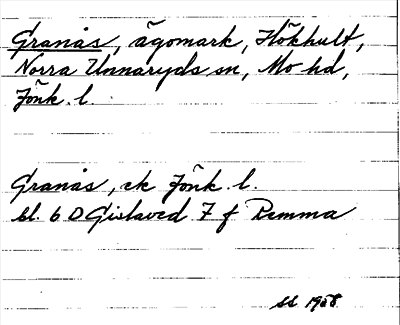 Granås, ägomark, Hökhult,
Norra Unnaryds sn, Mo hd,
Jönk. l.
Granås, ek Jönk. l.
bl. 6 D Gislaved 7 f Remma
1958